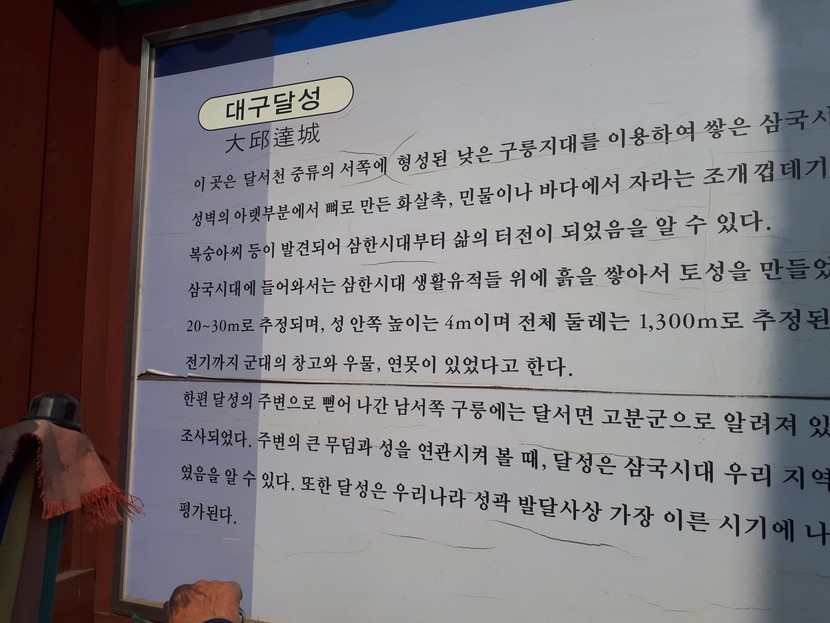 대구달성
大邱達城
이 곳은 달서천 중류의 서쪽에 형성된 낮은 구릉지대를 이용하여 쌓은 삼국시
성벽의 아랫부분에서 뼈로 만든 화살촉, 민물이나 바다에서 자라는 조개껍데기
복숭아씨 등이 발견되어 삼한시대부터 삶의 터전이 되었음을 알 수 있다.
삼국시대에 들어와서는 삼한시대 생활유적들 위에 흙을 쌓아서 토성을 만들었
20~30m로 추정되며, 성 안쪽 높이는 4m이며 전체 둘레는 1,300m로 추정된
전기까지 군대의 창고와 우물, 연못이 있었다고 한다.
한편 달성의 주변으로 뻗어 나간 남서쪽 구릉에는 달서면 고분군으로 알려져 있
조사되었다. 주변의 큰 무덤과 성을 연관시켜 볼 때, 달성은 삼국시대 우리 지역
였음을 알 수 있다. 또한 달성은 우리나라 성곽 발달사상 가장 이른 시기에 나
평가된다.